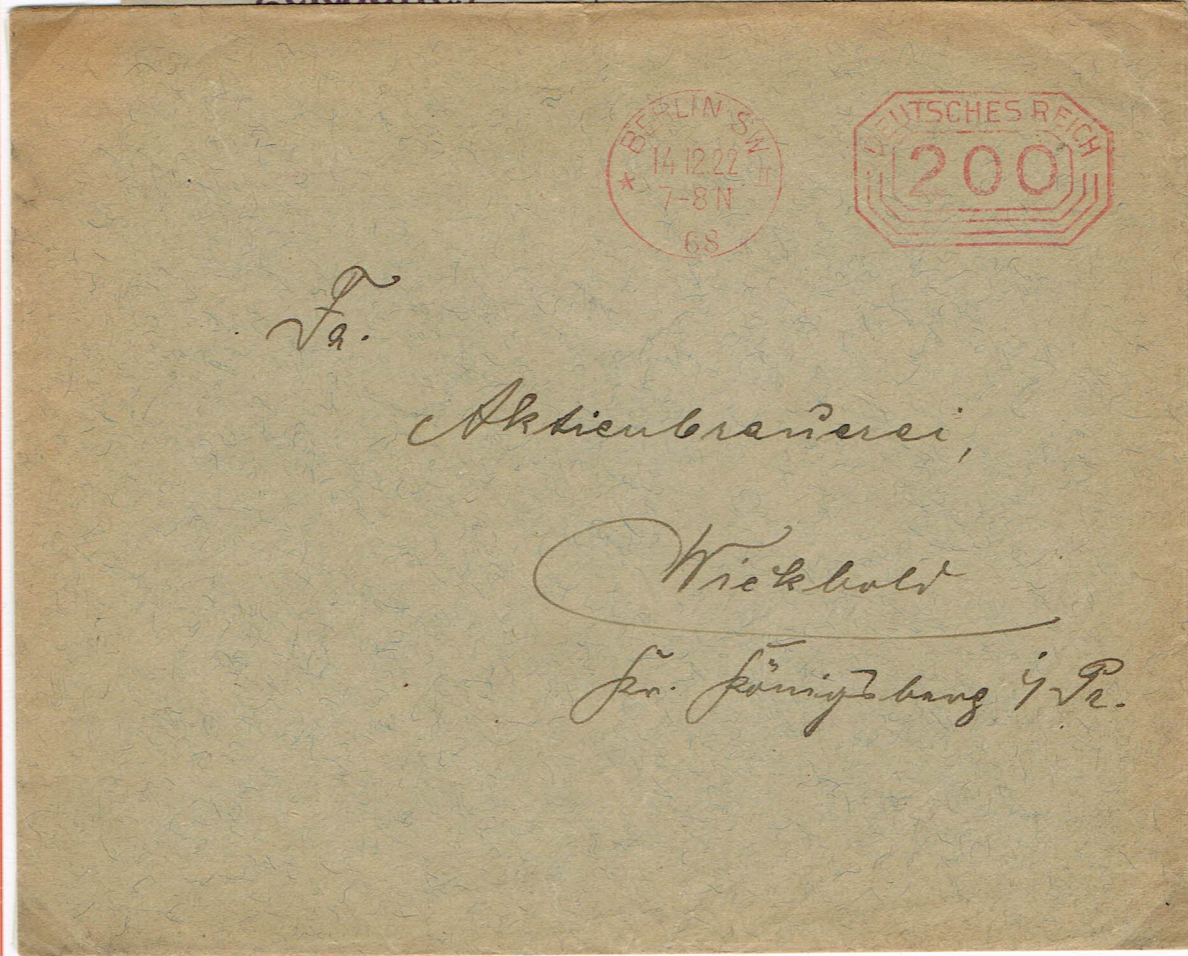 BERLIN SW
14.12.22 II
7-8 N
* 68
DEUTSCHES REICH
200
Fa.
Aktienbrauerei,
Wickbold
Kr. Königsberg i/Pr.